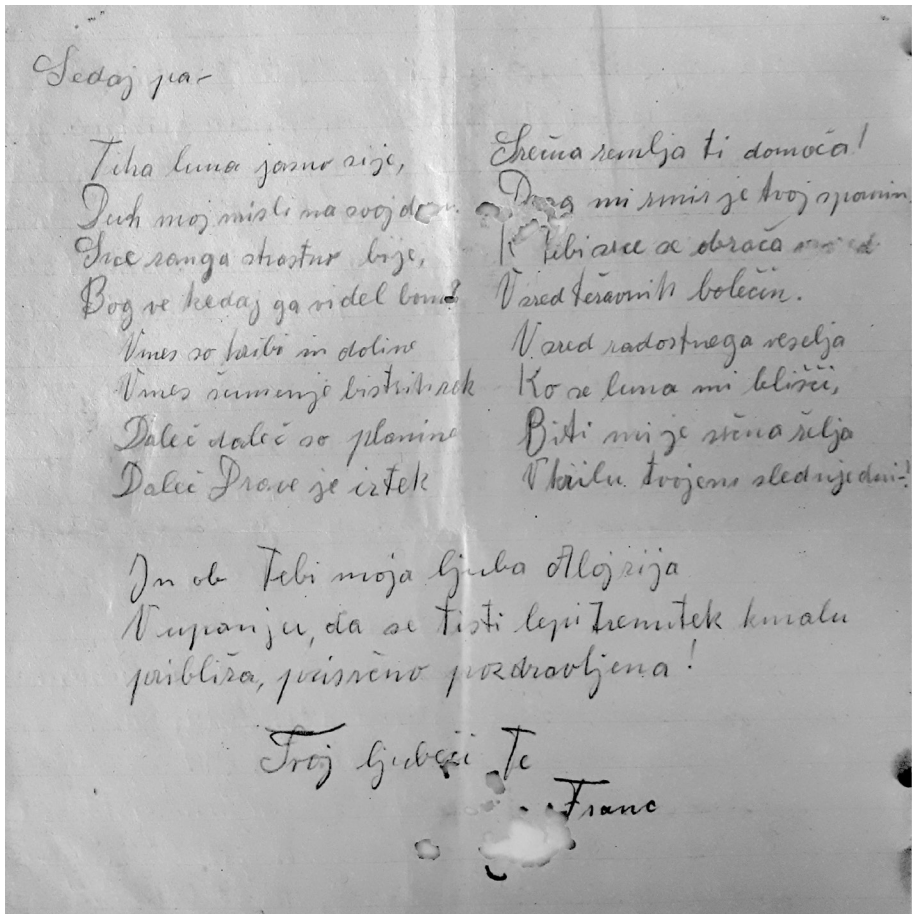 Sedaj pa-
Tiha luna jasno sije,
Duh moj misli na svoj
Srce zanga strastno bije,
Bog ve kedaj ga videl bom?
Vmes so hribi in doline
Vmes šumenje bistrih rek
Daleč daleč so planine
Daleč Drave je iztek
Srečna zemlja ti domača!
Drag mi zmir je tvoj spomin
K tebi srce se obrača
V sred težavnih bolečin.
V sred radostnega veselja
Ko se luna mi blišči,
Biti mi je srčna želja
V krilu tvojem slednje dni-!
In ob Tebi moja ljuba Alojzija
V upanju, da se tisti lepi Trenutek kmalu
približa, prisrčno pozdravljena!
Tvoj ljubeči Te
Franc